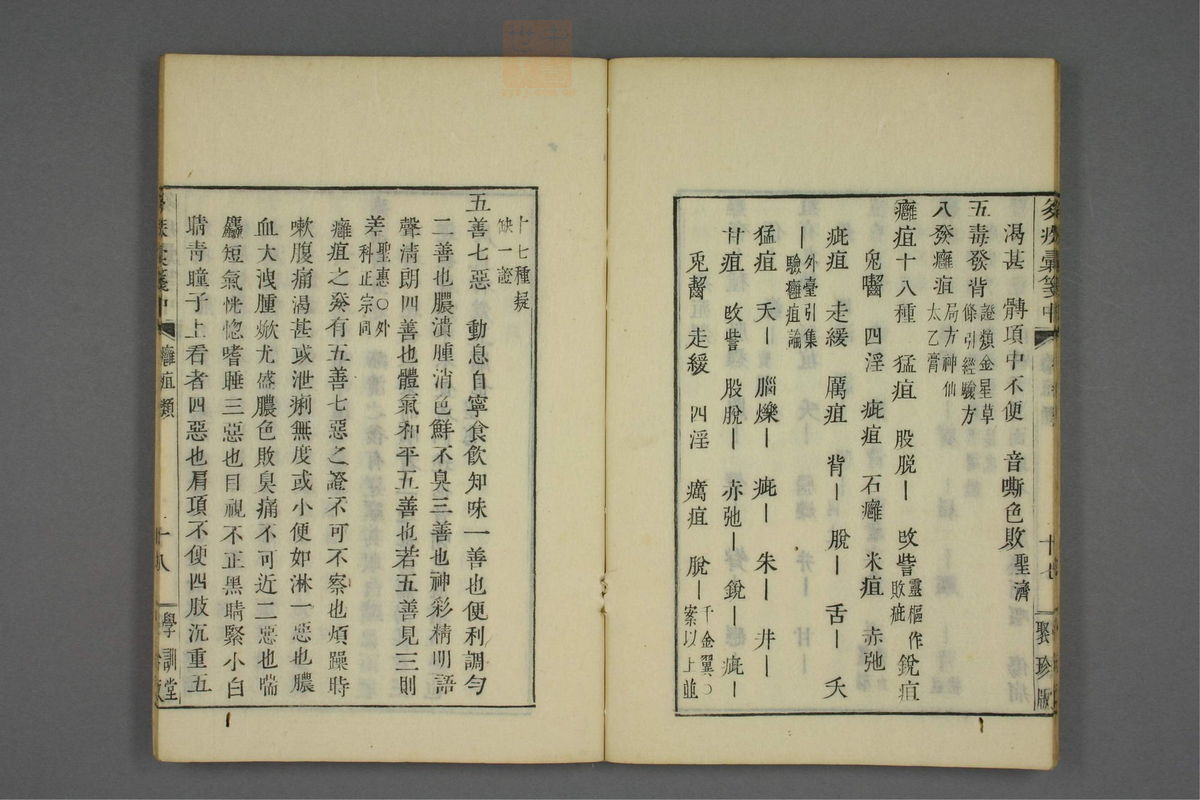 渴甚 髆項中不便 音嘶色敗聖濟
五毒發背證類金星草條引經驗方
八發癰疽局方神仙太乙膏
癰疽十八種 猛疽 股脱— 改訾靈樞作敗疵 銳疽
兔齧 四淫 疵疽 石癰 米疽 赤弛
疵疽 走緩 厲疽 背— 脫— 舌— 夭
—外臺引集驗癰疽論
猛疽 夭— 腦爍— 疵— 朱— 井—
甘疽 改訾 股脫— 赤弛— 銳— 疵—
兎齧 走緩 四淫 癘疽 脫—千金翼○案以上並
多疾彙箋中
十七
聚珍版
十七種疑缺一證
五善七惡 動息自寧食飲知味一善也便利調勻
二善也膿潰腫消色鮮不臭三善也神彩精明語
聲清朗四善也體氣和平五善也若五善見三則
差聖惠○外科正宗同
癰疽之發有五善七惡之證不可不察也煩躁時
嗽腹痛渴甚或泄痢無度或小便如淋一惡也膿
血大洩腫焮尤盛膿色敗臭痛不可近二惡也喘
麤短氣恍惚嗜睡三惡也目視不正黑睛緊小白
睛靑瞳子上看者四惡也肩項不便四肢沉重五
癰疽類
十八
學訓堂